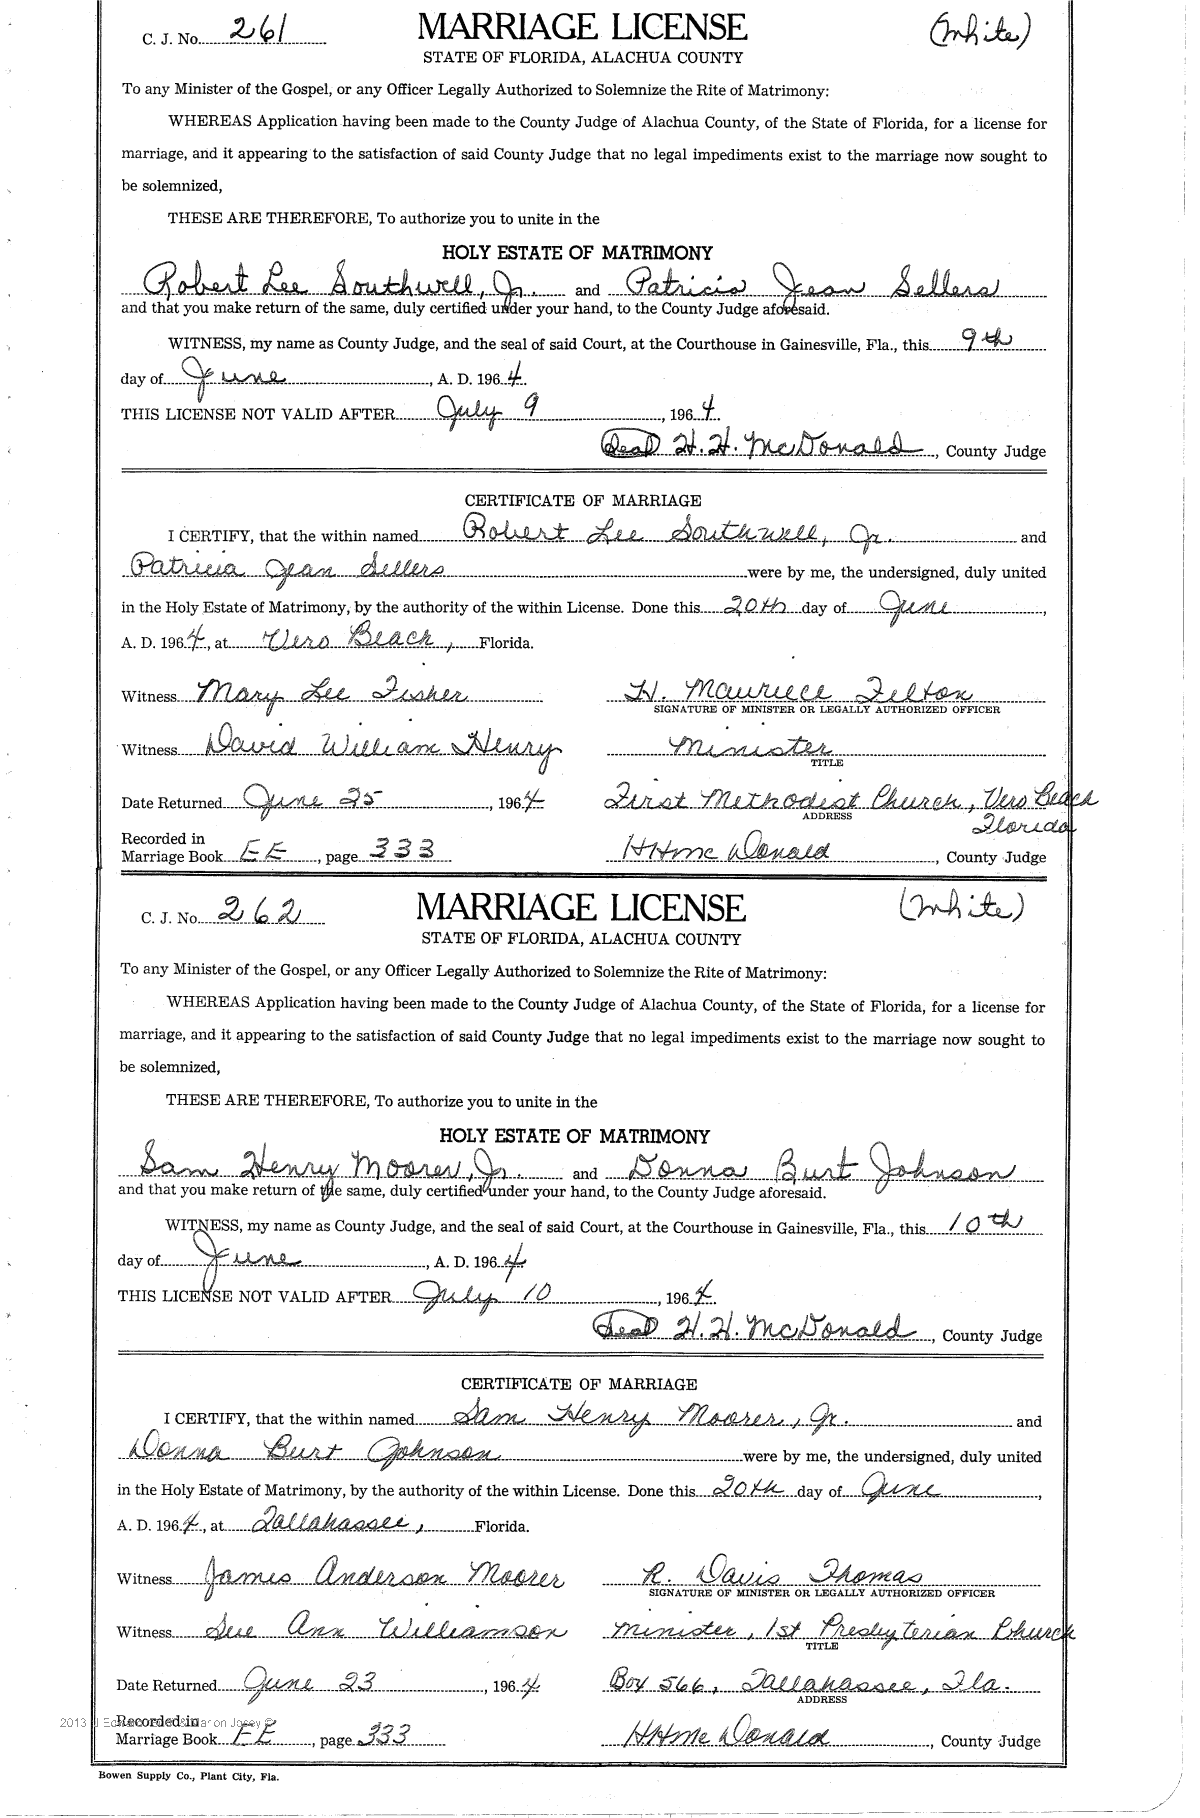 C. J. No. 261 MARRIAGE LICENSE (White)
STATE OF FLORIDA, ALACHUA COUNTY
To any Minister of the Gospel, or any Officer Legally Authorized to Solemnize the Rite of Matrimony:
WHEREAS Application having been made to the County Judge of Alachua County, of the State of Florida, for a license for
marriage, and it appearing to the satisfaction of said County Judge that no legal impediments exist to the marriage now sought to
be solemnized,
THESE ARE THEREFORE, To authorize you to unite in the
HOLY ESTATE OF MATRIMONY
Robert Lee Southwell, Jr. and Patricia Jean Sellers
and that you make return of the same, duly certified under your hand, to the County Judge aforesaid.
WITNESS, my name as County Judge, and the seal of said Court, at the Courthouse in Gainesville, Fla., this 9th
day of June, A. D. 1964.
THIS LICENSE NOT VALID AFTER July 9, 1964
Seal H. H. McDonald, County Judge
CERTIFICATE OF MARRIAGE
I CERTIFY, that the within named Robert Lee Southwell, Jr. and
Patricia Jean Sellers were by me, the undersigned, duly united
in the Holy Estate of Matrimony, by the authority of the within License. Done this 20th day of June,
A. D. 1964, at Vero Beach, Florida.
Witness Mary Lee Fisher H. Mauriece Felton
SIGNATURE OF MINISTER OR LEGALLY AUTHORIZED OFFICER
Witness David William Henry Minister
TITLE
Date Returned June 25, 1964 First Methodist Church, Vero Beach
ADDRESS Florida
Recorded in
Marriage Book EE, page 333 HHMcDonald, County Judge
C. J. No. 262 MARRIAGE LICENSE (White)
STATE OF FLORIDA, ALACHUA COUNTY
To any Minister of the Gospel, or any Officer Legally Authorized to Solemnize the Rite of Matrimony:
WHEREAS Application having been made to the County Judge of Alachua County, of the State of Florida, for a license for
marriage, and it appearing to the satisfaction of said County Judge that no legal impediments exist to the marriage now sought to
be solemnized,
THESE ARE THEREFORE, To authorize you to unite in the
HOLY ESTATE OF MATRIMONY
Sam Henry Moorer, Jr. and Donna Burt Johnson
and that you make return of the same, duly certified under your hand, to the County Judge aforesaid.
WITNESS, my name as County Judge, and the seal of said Court, at the Courthouse in Gainesville, Fla., this 10th
day of June, A. D. 1964
THIS LICENSE NOT VALID AFTER July 10, 1964.
Seal H. H. McDonald, County Judge
CERTIFICATE OF MARRIAGE
I CERTIFY, that the within named Sam Henry Moorer, Jr. and
Donna Burt Johnson were by me, the undersigned, duly united
in the Holy Estate of Matrimony, by the authority of the within License. Done this 20th day of June,
A. D. 1964, at Tallahassee, Florida.
Witness James Anderson Moorer R. Davis Thomas
SIGNATURE OF MINISTER OR LEGALLY AUTHORIZED OFFICER
Witness Sue Ann Williamson Minister, 1st Presbyterian Church
TITLE
Date Returned June 23, 1964 Box 566, Tallahassee, Fla.
ADDRESS
2013 Recorded in
Marriage Book EE, page 333 HHMcDonald, County Judge
Bowen Supply Co., Plant City, Fla.